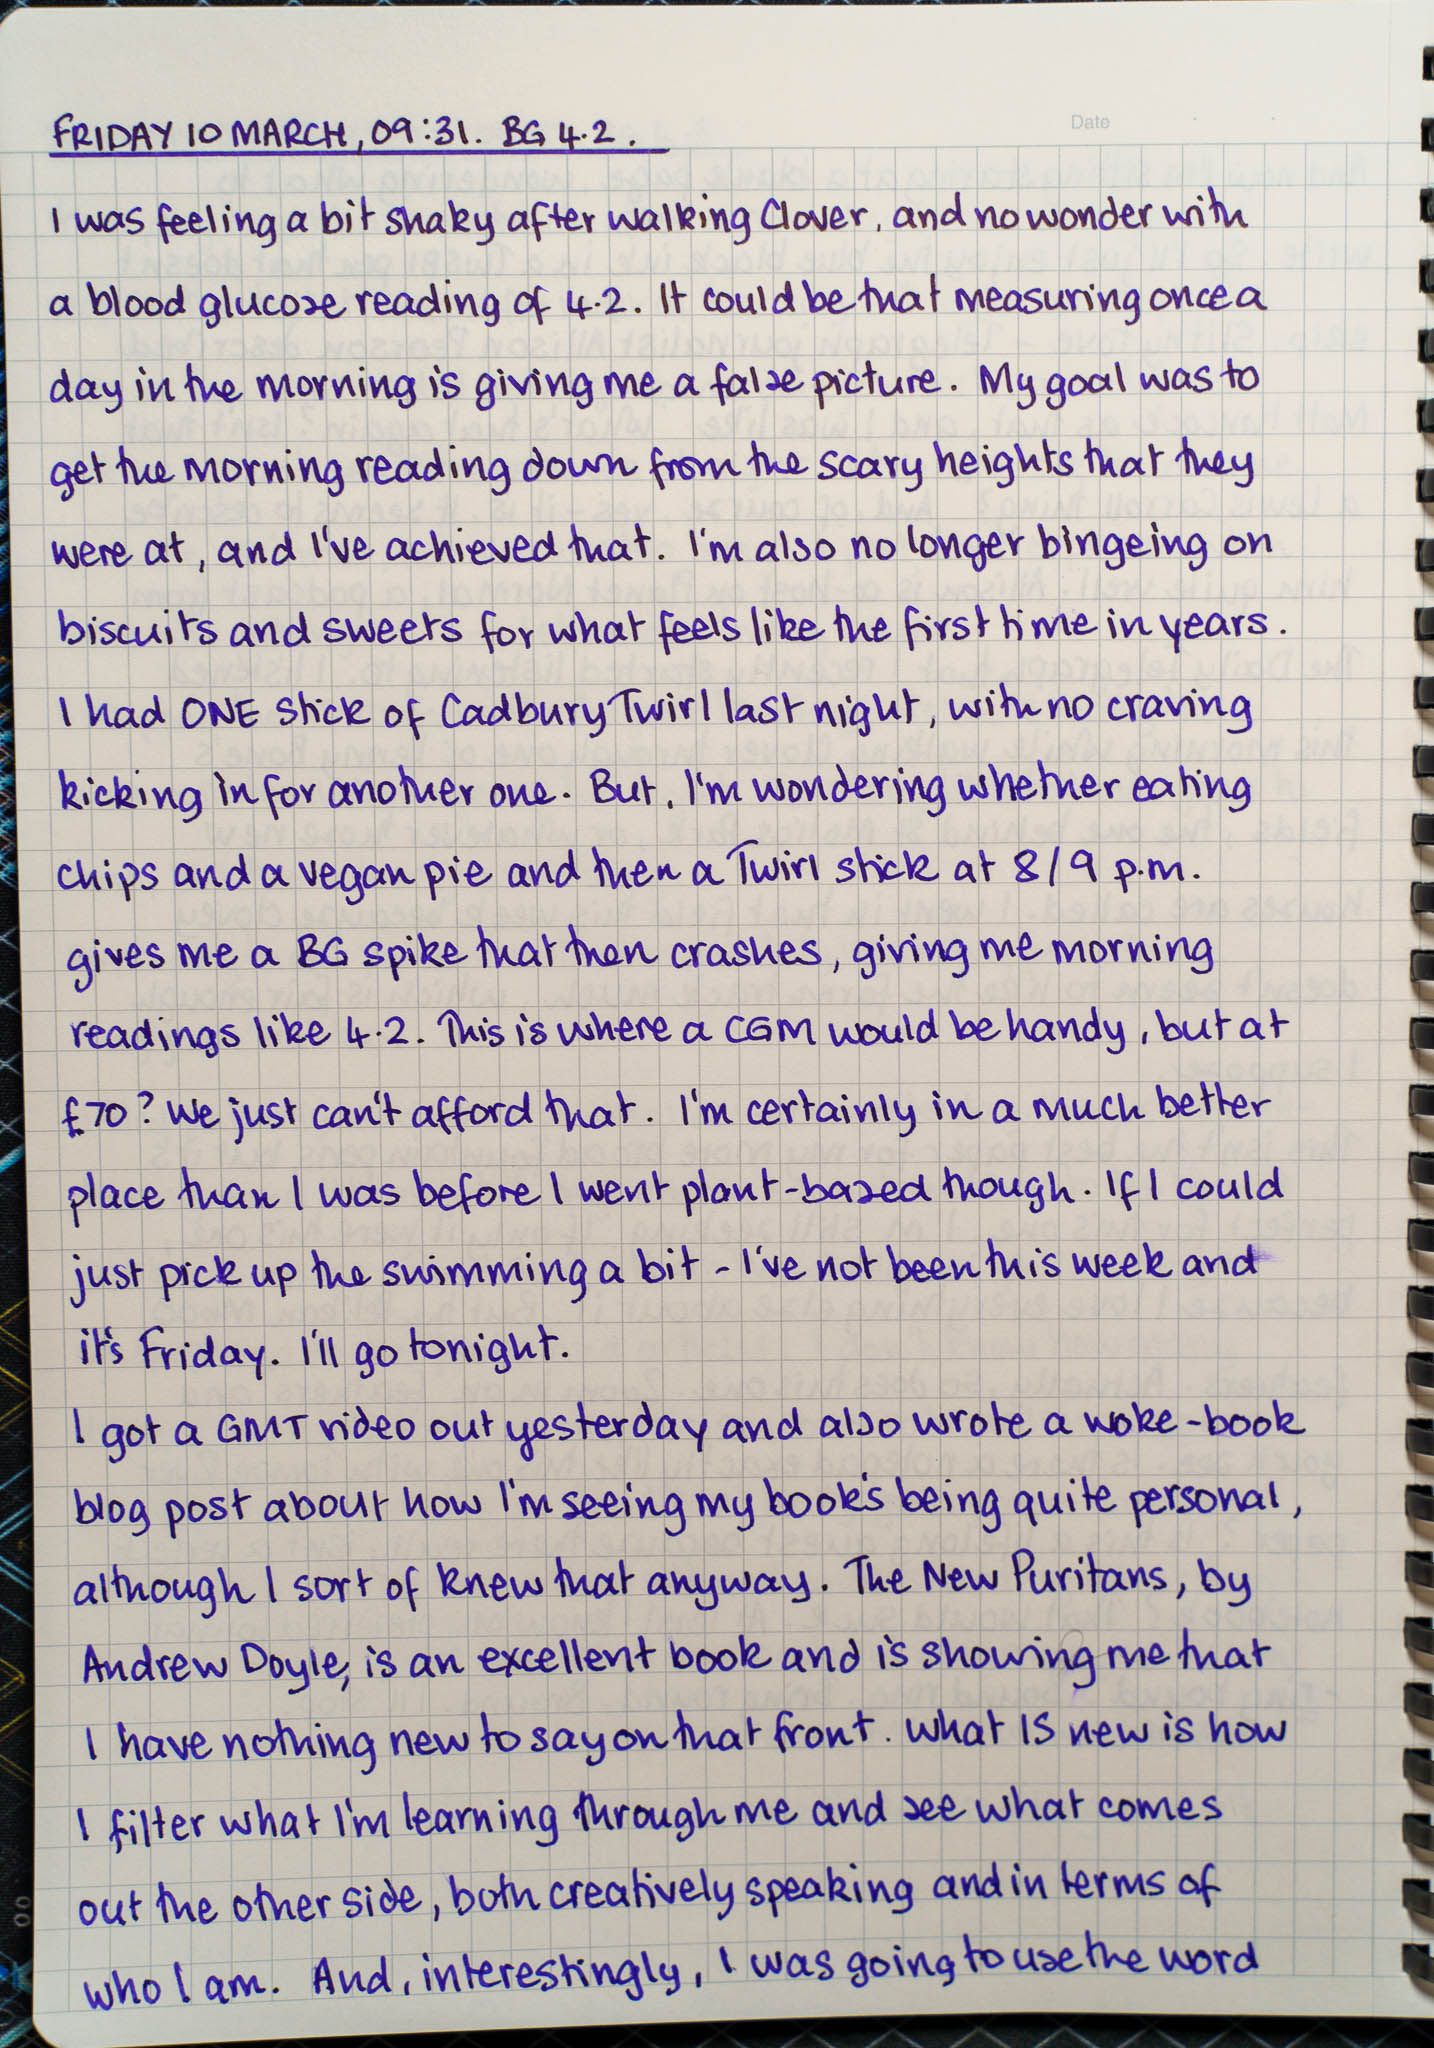 Date
FRIDAY 10 MARCH, 09:31. BG 4.2.
I was feeling a bit shaky after walking Clover, and no wonder with
a blood glucose reading of 4.2. It could be that measuring once a
day in the morning is giving me a false picture. My goal was to
get the morning reading down from the scary heights that they
were at, and I've achieved that. I'm also no longer bingeing on
biscuits and sweets for what feels like the first time in years.
I had ONE stick of Cadbury Twirl last night, with no craving
kicking in for another one. But, I'm wondering whether eating
chips and a vegan pie and then a Twirl stick at 8/9 p.m.
gives me a BG spike that then crashes, giving me morning
readings like 4.2. This is where a CGM would be handy, but at
£70? We just can't afford that. I'm certainly in a much better
place than I was before I went plant-based though. If I could
just pick up the swimming a bit - I've not been this week and
it's Friday. I'll go tonight.
I got a GMT video out yesterday and also wrote a woke-book
blog post about how I'm seeing my book's being quite personal,
although I sort of knew that anyway. The New Puritans, by
Andrew Doyle, is an excellent book and is showing me that
I have nothing new to say on that front. What IS new is how
I filter what I'm learning through me and see what comes
out the other side, both creatively speaking and in terms of
who I am. And, interestingly, I was going to use the word